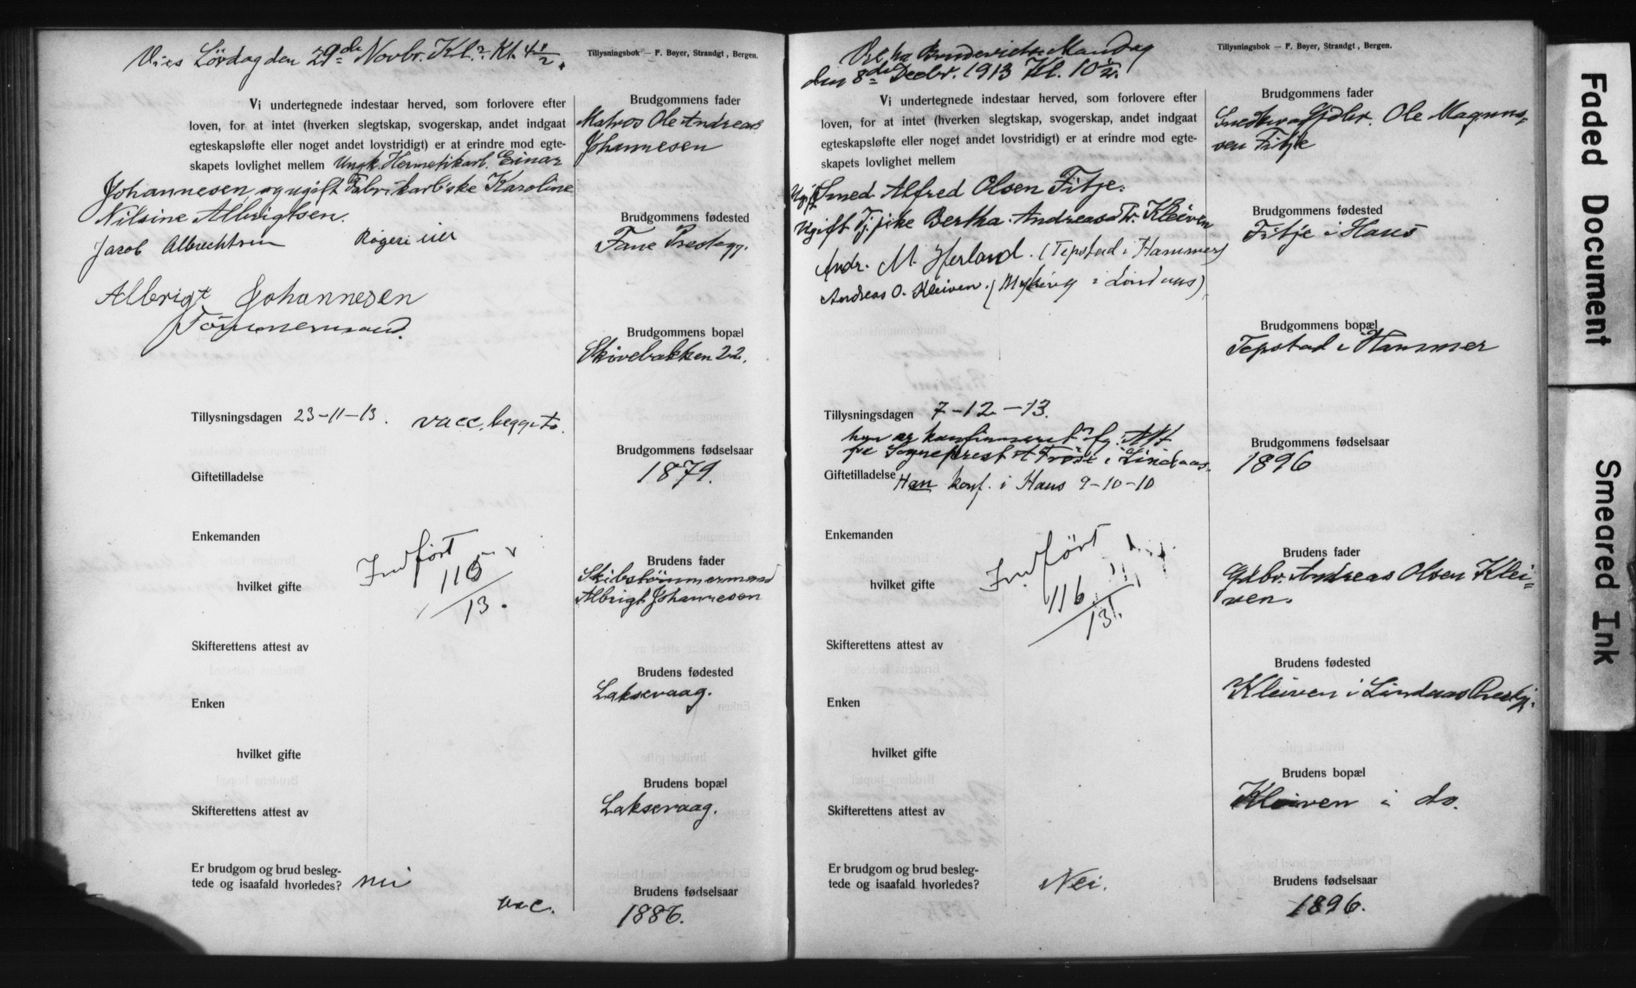 Vies Lördag den 29de Novbr. Kl. 4 1/2.
Tillysningsbok — F. Beyer, Strandgt, Bergen.
Vi undertegnede indestaar herved, som forlovere efter
loven, for at intet (hverken slegtskap, svogerskap, andet indgaat
egteskapsløfte eller noget andet lovstridigt) er at erindre mod egte-
skapets lovlighet mellem Ungk. Hermetikarb. Einar
Johannesen og ugift Fabrikarb'ske Karoline
Nilsine Albrigtsen.
Jacob Albrechtsen
Albrigt Johannesen
Tömmermand.
Tillysningsdagen 23-11-13. vacc. begge to.
Giftetilladelse
Enkemanden
hvilket gifte
Indført
115/13.
Skifterettens attest av
Enken
hvilket gifte
Skifterettens attest av
Er brudgom og brud besleg-
tede og isaafald hvorledes? nei
vac.
Brudgommens fader
Matros Ole Andreas
Johannesen
Brudgommens fødested
Fane Prestegj.
Brudgommens bopæl
Skivebakken 22.
Brudgommens fødselsaar
1879.
Brudens fader
Skibstömmermand
Albrigt Johannesen
Brudens fødested
Laksevaag.
Brudens bopæl
Laksevaag.
Brudens fødselsaar
1886.
Mandag
den 8de Decbr. 1913 Kl. 10 1/2.
Tillysningsbok — F. Beyer, Strandgt, Bergen.
Vi undertegnede indestaar herved, som forlovere efter
loven, for at intet (hverken slegtskap, svogerskap, andet indgaat
egteskapsløfte eller noget andet lovstridigt) er at erindre mod egte-
skapets lovlighet mellem
Ugift Smed Alfred Olsen Fitje.
Ugift Tj.pike Bertha Andreasdtr. Kleiven
Andr. M. Herland. (Tepstad i Hammer)
Andreas O. Kleiven. (Myking i Lindaas)
Tillysningsdagen 7-12-13.
hun er konfirmeret ifg. Att.
fra Sogneprest i Lindaas.
Giftetilladelse Han konf. i Haus 9-10-10
Enkemanden
hvilket gifte
Indført
116/13.
Skifterettens attest av
Enken
hvilket gifte
Skifterettens attest av
Er brudgom og brud besleg-
tede og isaafald hvorledes? Nei.
Brudgommens fader
Snedker og Gdbr. Ole Magnus-
sen Fitje
Brudgommens fødested
Fitje i Haus
Brudgommens bopæl
Tepstad i Hammer
Brudgommens fødselsaar
1896
Brudens fader
Gdbr. Andreas Olsen Klei-
ven.
Brudens fødested
Kleiven i Lindaas Prestgj.
Brudens bopæl
Kleiven i do.
Brudens fødselsaar
1896.
Faded Document
Smeared Ink